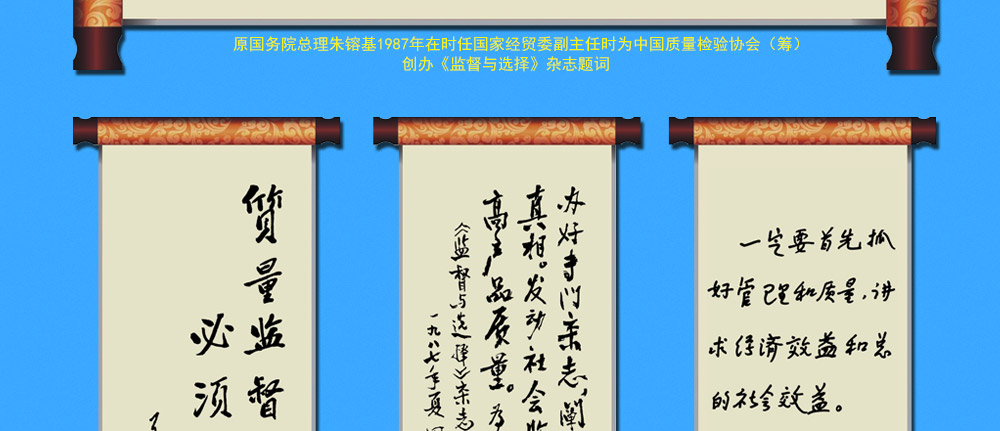 原国务院总理朱镕基1987年在时任国家经贸委副主任时为中国质量检验协会（筹）
创办《监督与选择》杂志题词
质量监督
必须
办好专门杂志，阐
真相。发动社会监
高产品质量。为
《监督与选择》杂志
一九八七年夏
一定要首先抓
好管理和质量，讲
求经济效益和总
的社会效益。